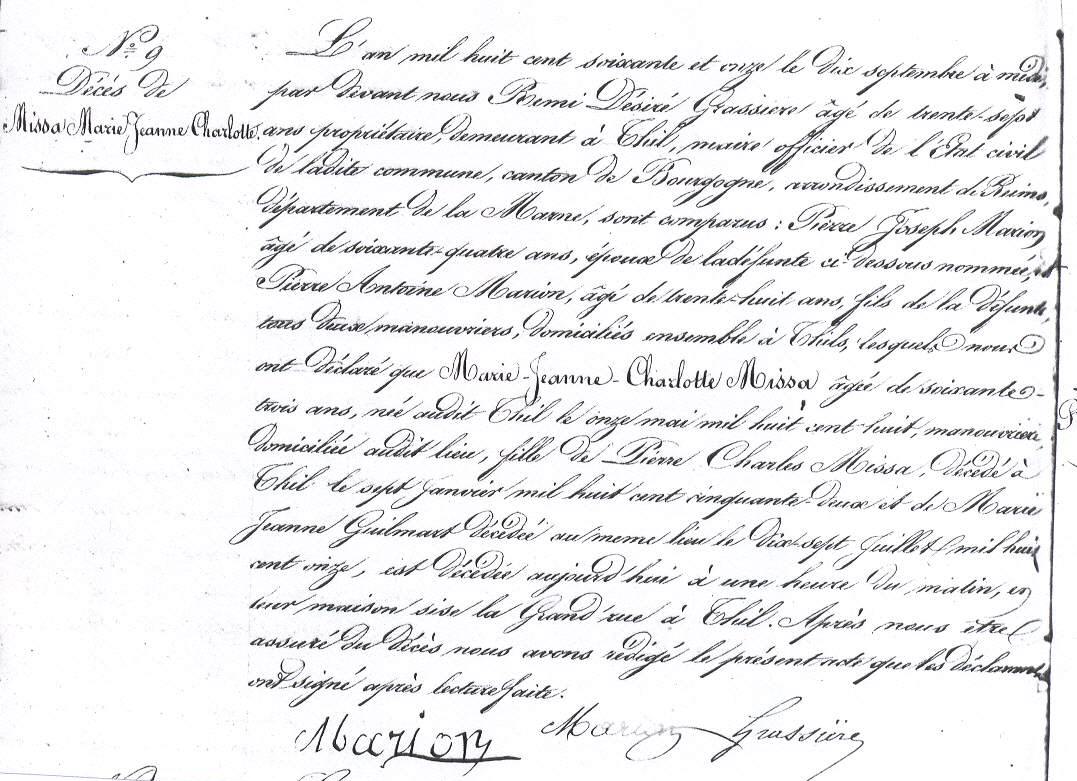 N.o 9
Décès de
Missa Marie Jeanne Charlotte.
L'an mil huit cent soixante et onze le dix septembre à midi,
par devant nous Remi Désiré Grassiere âgé de trente-sept
ans propriétaire, demeurant à Thil, maire officier de l'Etat civil
de ladite commune, canton de Bourgogne, arrondissement de Reims,
département de la Marne, sont comparus : Pierre Joseph Marion
âgé de soixante-quatre ans, époux de la défunte ci-dessous nommée, et
Pierre Antoine Marion, âgé de trente-huit ans, fils de la défunte,
tous deux manouvriers, domiciliés ensemble à Thil, lesquels nous
ont déclaré que Marie-Jeanne-Charlotte Missa âgée de soixante-
trois ans, née audit Thil le onze mai mil huit cent huit, manouvrière,
domiciliée audit lieu, fille de Pierre Charles Missa, décédé à
Thil le sept Janvier mil huit cent cinquante-deux et de Marie
Jeanne Guilmart décédée au meme lieu le dix-sept Juillet mil huit
cent onze, est décédée aujourd'hui à une heure du matin, en
leur maison sise la Grand'rue à Thil. Après nous être
assuré du décès nous avons rédigé le présent acte que les déclarants
ont signé après lecture faite.
Marion Marion Grassière